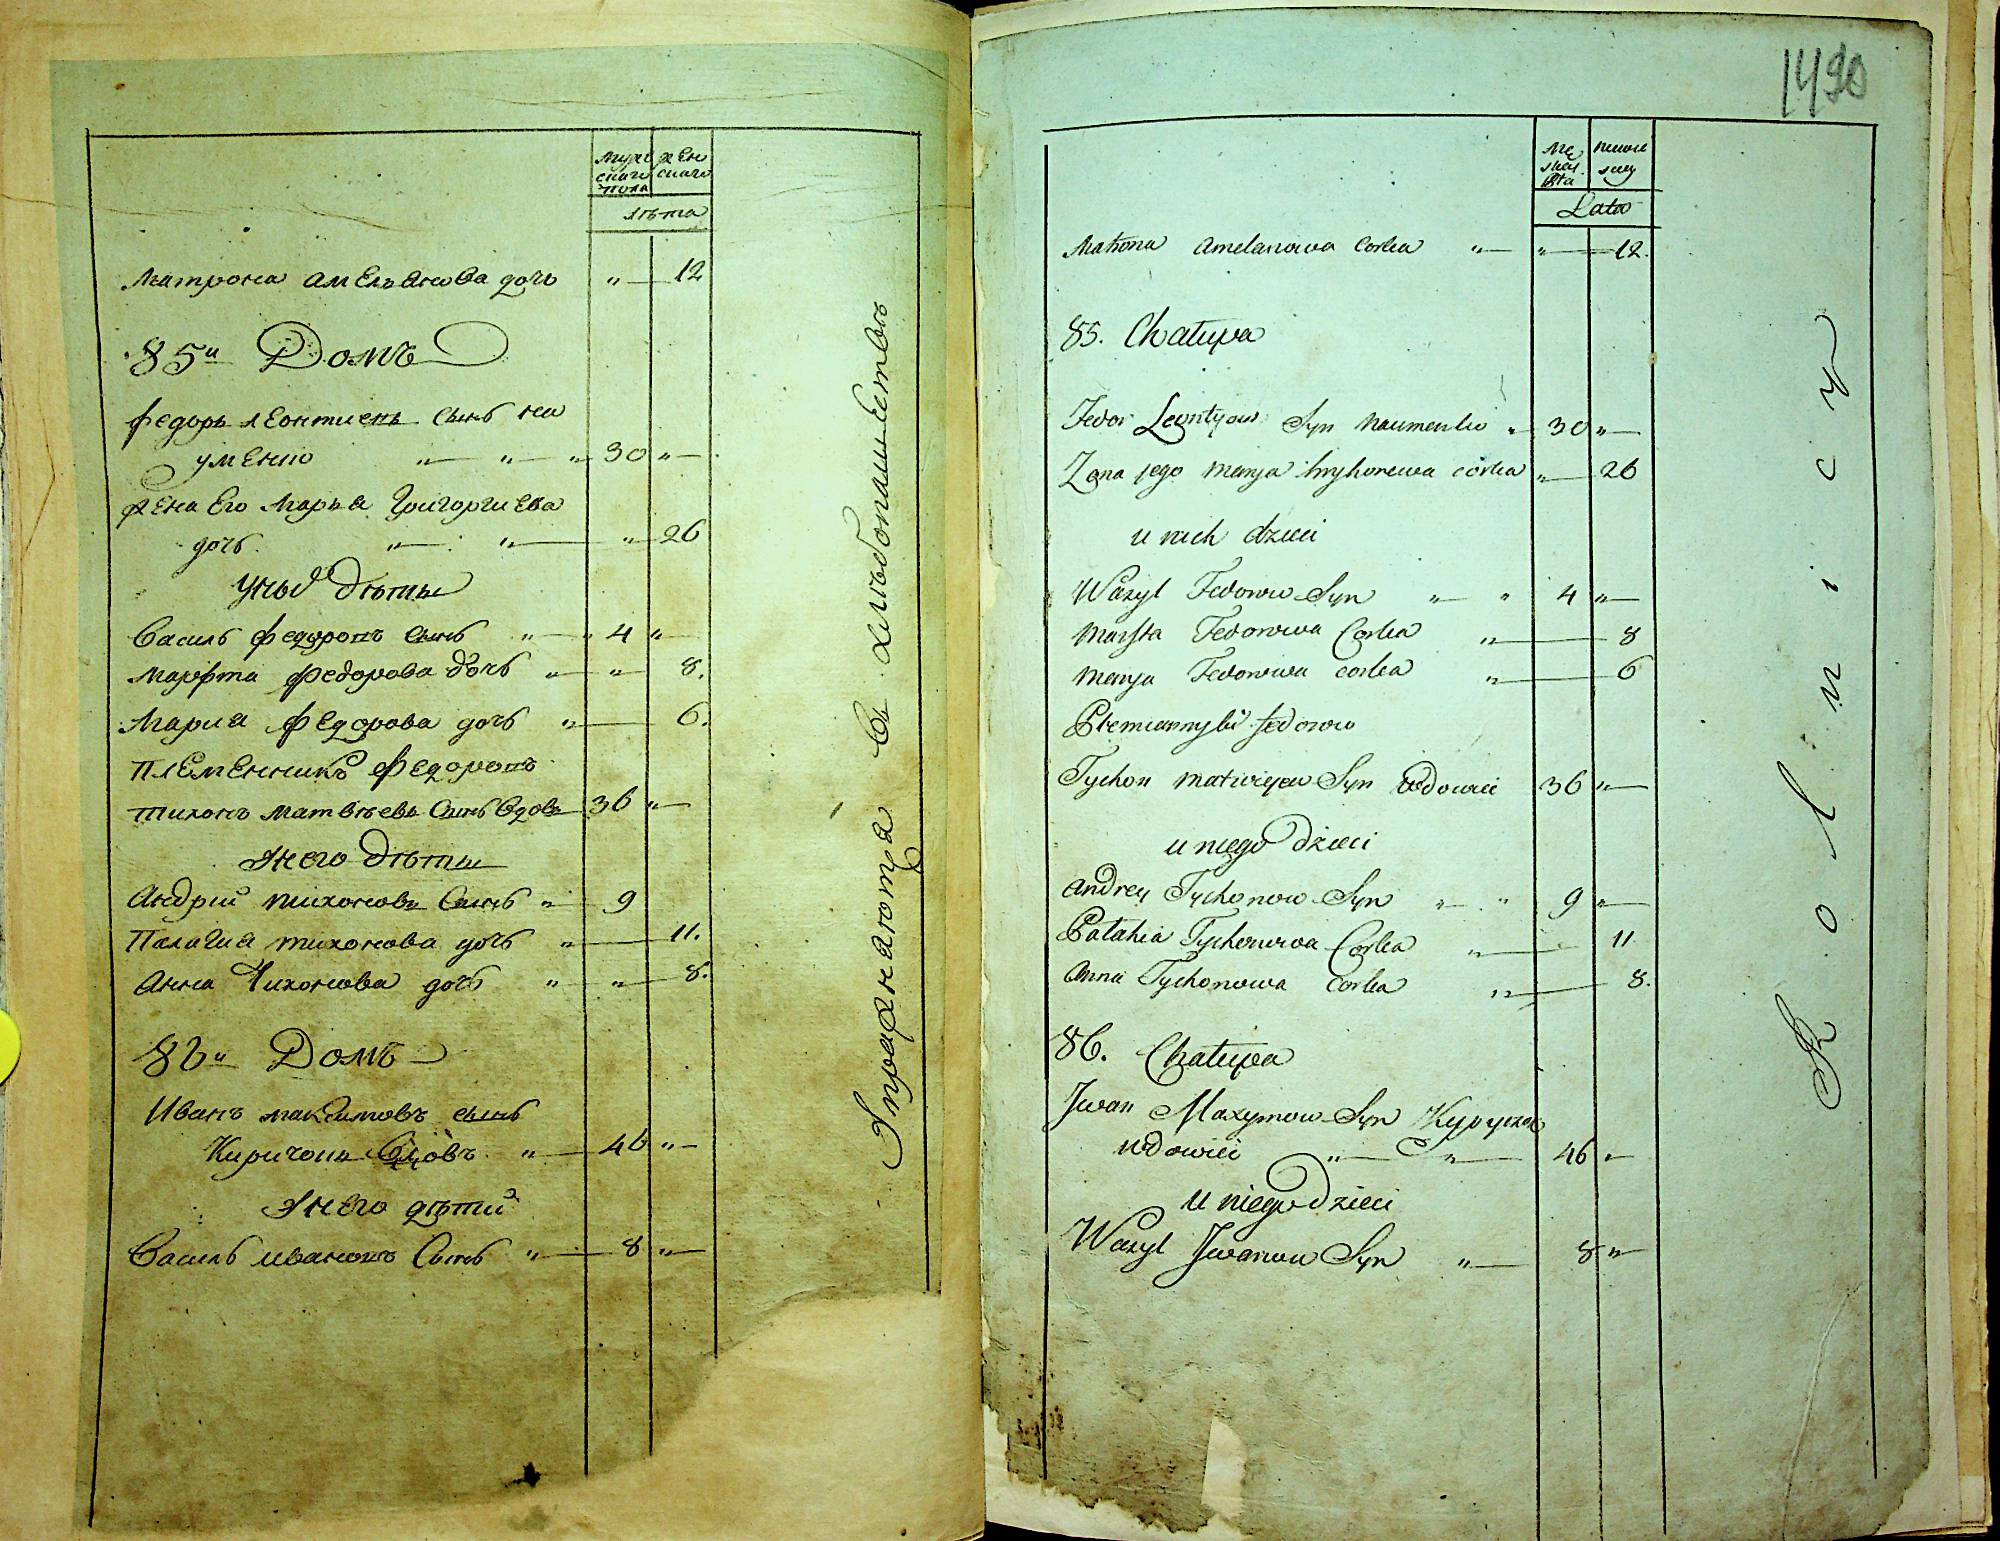 муже женс
скаго скаго
пола
лѣта
Матрона Амельянова дочь " 12
85й Домъ
Федоръ Леонтиевъ сынъ На
уменко " " " 30 "
Жена Его Марья Григоргиева
дочь " " " 26
У ныхъ дѣты
Василь Федоровъ сынъ " " 4 "
Марфта Федорова дочь " " 8.
Мария Федорова дочь " 6.
Племенникъ Федоровъ
Тихонъ Матвѣевъ сынъ вдовъ 36 "
У него дѣты
Андрий Тихоновъ сынъ " 9
Палагия Тихонова дочь " 11.
Анна Тихонова дочь " " 8.
86й Домъ
Иванъ Максимовъ сынъ
Киричокъ вдовъ " 46 "
У него дѣти
Василь Ивановъ сынъ " 8 "
Упражнаютца въ хлѣбопашествѣ
1490
Lata
Matrona Amelanowa Corka " " 12.
85. Chatupa
Fedor Leontyow Syn Naumenko " 30 "
Zona jego Marya hryhorewa corka " 26
u nich dzieci
Wasyl Fedorow Syn " " 4 "
Marfta Fedorowa Corka " 8
Marya Fedorowa corka " 6
Plemiannyk fedorow
Tychon Matwiejew Syn wdowiec 36 "
u niego dzieci
Andrey Tychonow Syn " " 9 "
Palahia Tychonowa Corka " 11
Anna Tychonowa Corka " 8.
86. Chatupa
Jwan Maxymow Syn Kyryczok
wdowiec " " 46 "
u niego dzieci
Wasyl Jwanow Syn " 8 "
Rolnicy